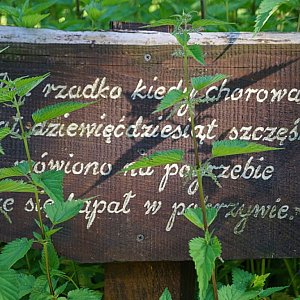 rzadko kiedy chorował
dziewięćdziesiąt sześć
mówiono na pogrzebie
że się kąpał w pokrzywie.